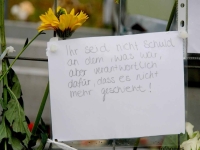 Ihr seid nicht Schuld
an dem, was war,
aber verantwortlich
dafür, dass es nicht
mehr geschieht!